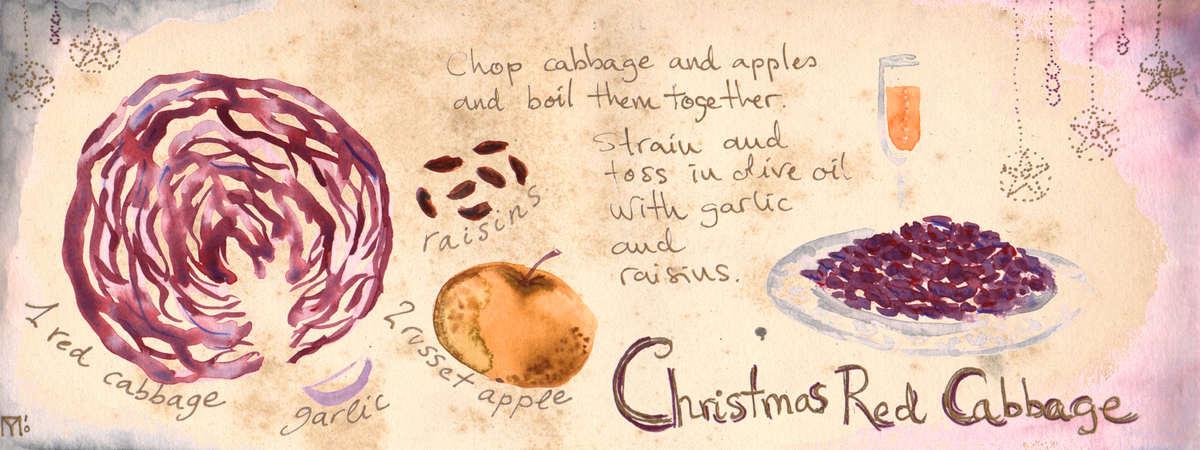 Chop cabbage and apples
and boil them together.
Strain and
toss in olive oil
with garlic
and
raisins.
raisins
1 red cabbage
garlic
2 russet apple
Christmas Red Cabbage